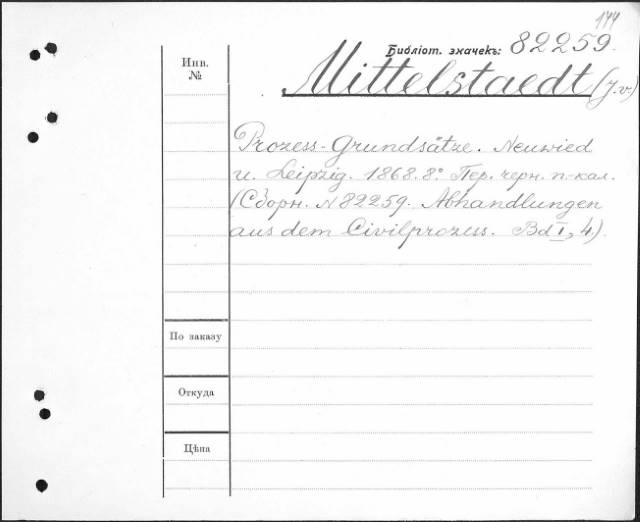 144
Библіот. значекъ: 82259.
Инв. №
Mittelstaedt (J. v.)
Prozess-Grundsätze. Neuwied
u. Leipzig. 1868. 8° Пер. черн. п-кал.
(Сборн. N 82259. Abhandlungen
aus dem Civilprozess. Bd I, 4).
По заказу
Откуда
Цѣна